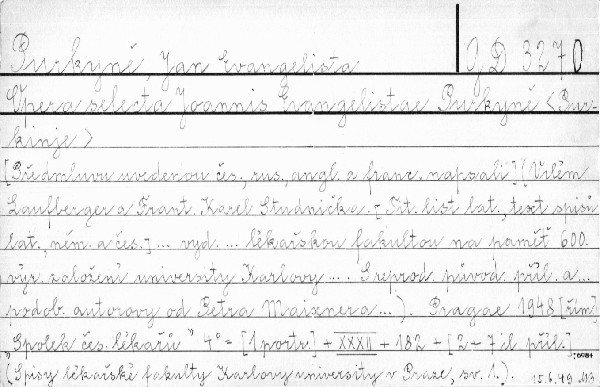 Purkyně, Jan Evangelista JD 3270
Opera selecta Joannis Evangelistae Purkyně <Pur-
kinje>
[Předmluvu uvedenou čes., rus., angl. a franc. napsali] (Vilém
Laufberger a Frant. Karel Studnička. [Tit. list lat., text spisů
lat., něm. a čes.] ... vyd. ... lékařskou fakultou na paměť 600.
výr. založení university Karlovy .... S reprod. původ. příl. a...
podob. autorovy od Petra Maixnera...). Pragae 1948 [řím]
"Spolek čes. lékařů" 4° = [1 portr.] + XXXII + 182 + [2 - 7 il. příl.]
(Spisy lékařské fakulty Karlovy university v Praze, sv. 1.). 15.6.49